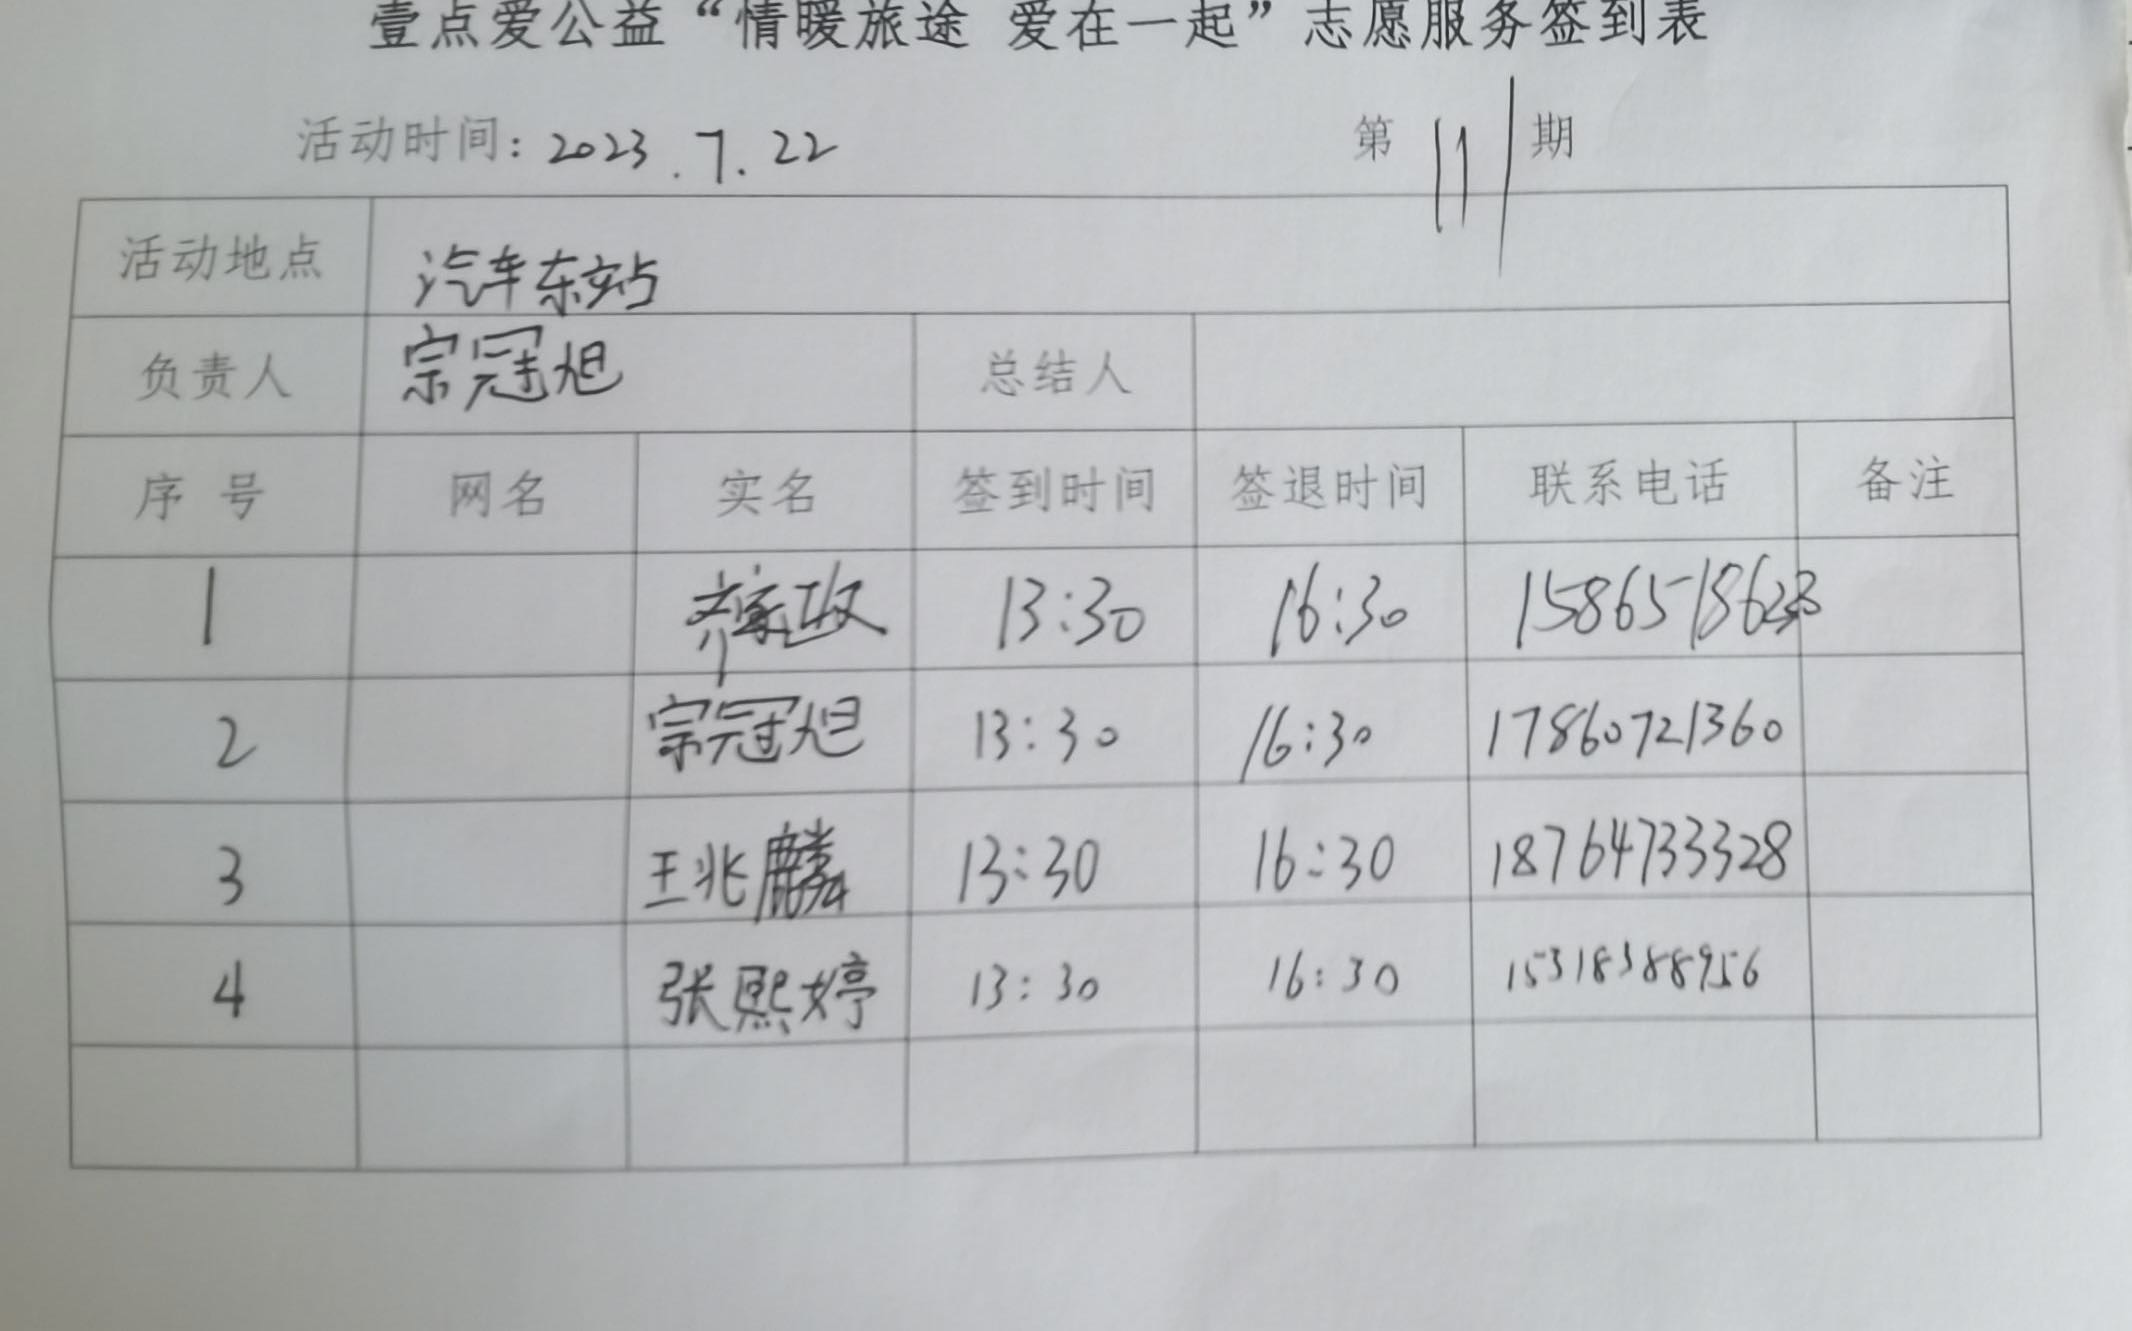 壹点爱公益“情暖旅途 爱在一起”志愿服务签到表
活动时间：2023.7.22 第111期
活动地点 汽车东站
负责人 宗冠旭 总结人
序号 网名 实名 签到时间 签退时间 联系电话 备注
1 13:30 16:30
2 宗冠旭 13:30 16:30 17860721360
3 王兆麟 13:30 16:30 18764733328
4 张熙婷 13:30 16:30 15318388956